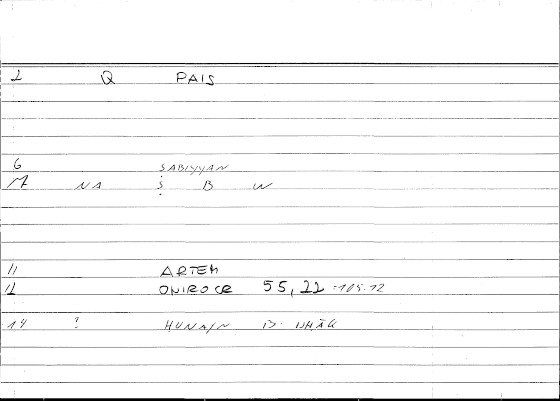 2 Q PAIS
6 SABIYYAN
NA Ṣ B W
11 ARTEM
12 ONIROCR 55, 22 :105.12
14 ? HUNAYN B.